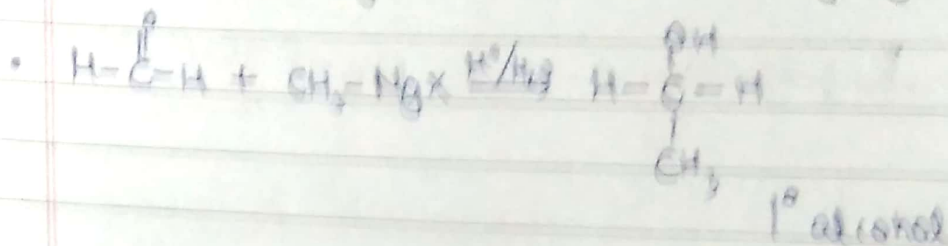 O
• H-C-H + CH3-MgX H⊕/H2O H-C-H
OH
CH3
1° alcohol